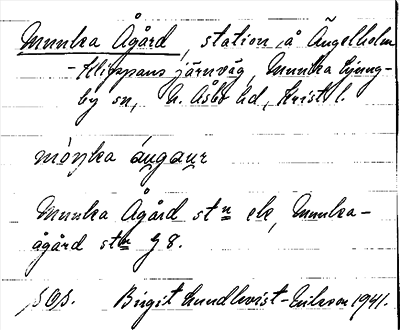 Munka Ågård, station å Ängelholm
-Klippans järnväg, Munka Ljung-
by sn, N. Åsbo hd, Krist. l.
móŋka áugaur
Munka Ågård stn ek, Munka-
ågård stn G 8.
SOS. Birgit Lundkvist-Eriksson 1941.